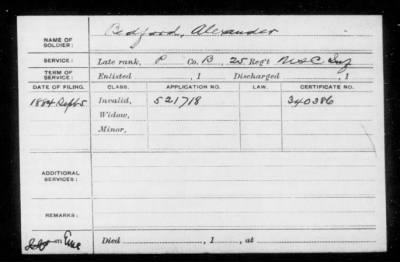 NAME OF SOLDIER: Bedford, Alexander
SERVICE: Late rank, P Co. B, 25 Reg't U.S.C. Inf
TERM OF SERVICE: Enlisted , 1 Discharged , 1
DATE OF FILING. CLASS. APPLICATION NO. LAW. CERTIFICATE NO.
1884 Sept 5 Invalid, 521718 340386
Widow,
Minor,
ADDITIONAL SERVICES:
REMARKS:
Died , 1 , at